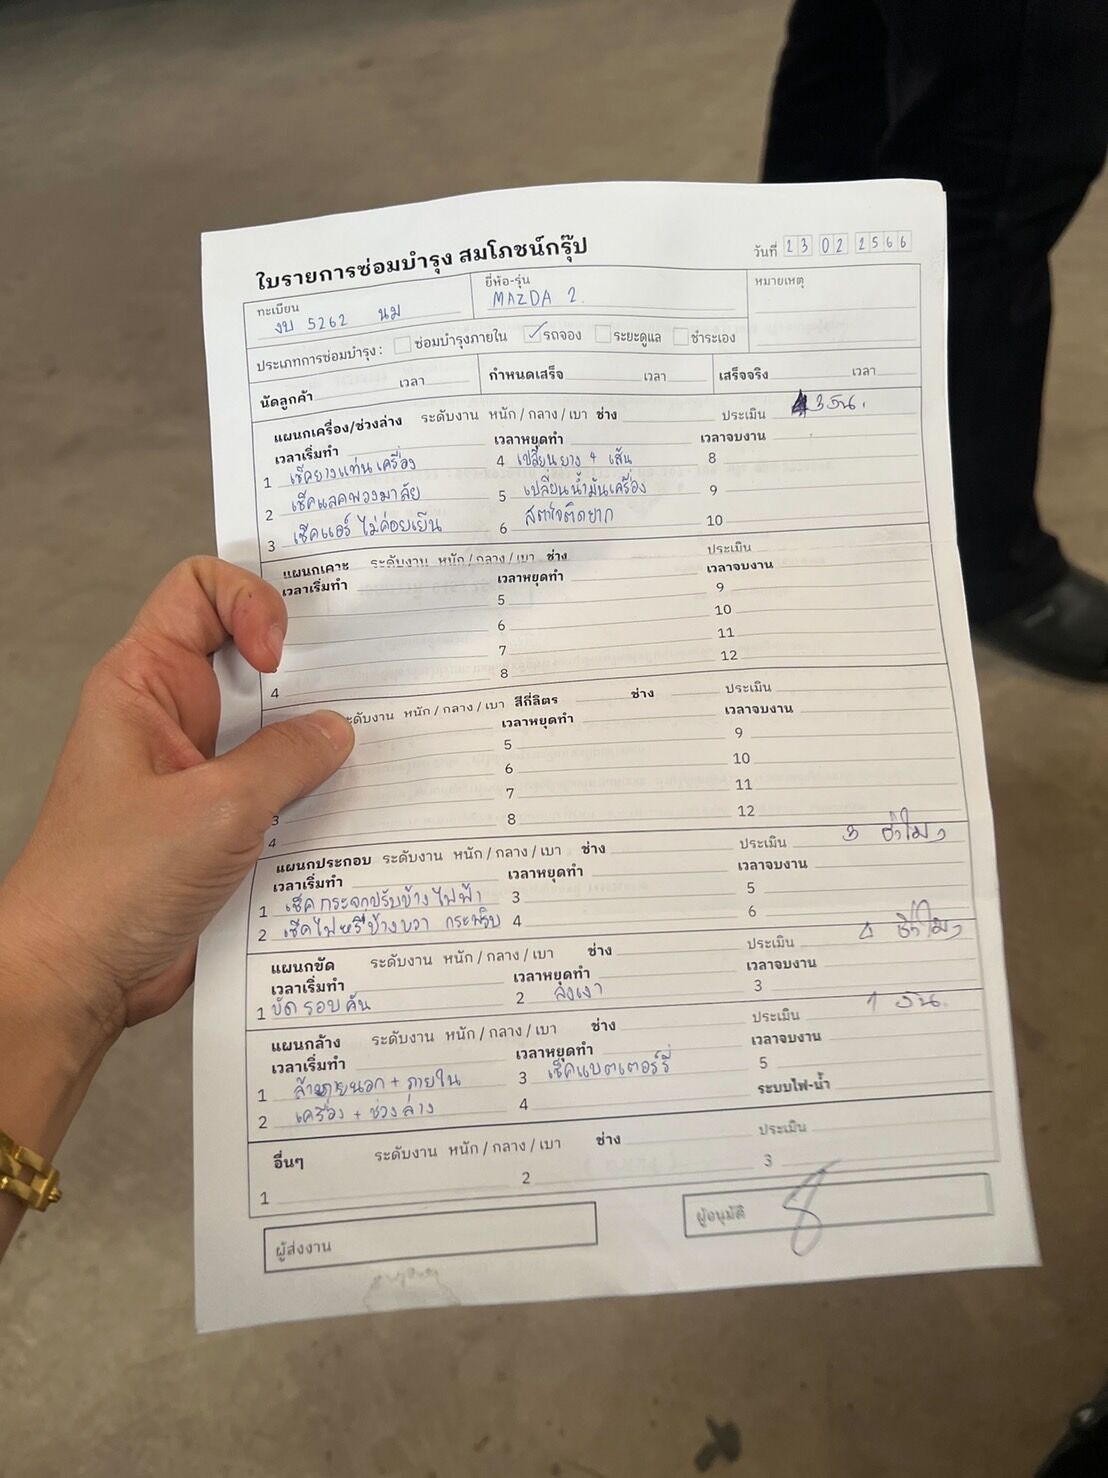 ใบรายการซ่อมบำรุง สมโภชน์กรุ๊ป
วันที่ 23 02 2566
ทะเบียน งบ 5262 นม
ยี่ห้อ-รุ่น MAZDA 2
หมายเหตุ
ประเภทการซ่อมบำรุง : ซ่อมบำรุงภายใน ✓ รถจอง ระยะดูแล ชำระเอง
นัดลูกค้า เวลา กำหนดเสร็จ เวลา เสร็จจริง เวลา
แผนกเครื่อง/ช่วงล่าง ระดับงาน หนัก / กลาง / เบา ช่าง ประเมิน 3 วัน.
เวลาเริ่มทำ เวลาหยุดทำ เวลาจบงาน
1 เช็คยางแท่นเครื่อง 4 เปลี่ยนยาง 4 เส้น 8
2 เช็คแลคพวงมาลัย 5 เปลี่ยนน้ำมันเครื่อง 9
3 เช็คแอร์ ไม่ค่อยเย็น 6 สตาร์จติดยาก 10
แผนกเคาะ ระดับงาน หนัก / กลาง / เบา ช่าง ประเมิน
เวลาเริ่มทำ เวลาหยุดทำ เวลาจบงาน
5 9
6 10
7 11
4 8 12
ระดับงาน หนัก / กลาง / เบา สีกี่ลิตร ช่าง ประเมิน
เวลาหยุดทำ เวลาจบงาน
5 9
6 10
3 7 11
4 8 12
แผนกประกอบ ระดับงาน หนัก / กลาง / เบา ช่าง ประเมิน 3 ชั่วโมง
เวลาเริ่มทำ เวลาหยุดทำ เวลาจบงาน
1 เช็คกระจกปรับข้างไฟฟ้า 3 5
2 เช็คไฟหรี่ข้างขวา กระพริบ 4 6
แผนกขัด ระดับงาน หนัก / กลาง / เบา ช่าง ประเมิน 4 ชั่วโมง
เวลาเริ่มทำ เวลาหยุดทำ เวลาจบงาน
1 ขัดรอบคัน 2 ลงเงา 3
แผนกล้าง ระดับงาน หนัก / กลาง / เบา ช่าง ประเมิน 1 วัน.
เวลาเริ่มทำ เวลาหยุดทำ เวลาจบงาน
1 ล้างภายนอก + ภายใน 3 เช็คแบตเตอร์รี่ 5
2 เครื่อง + ช่วงล่าง 4 ระบบไฟ-น้ำ
อื่นๆ ระดับงาน หนัก / กลาง / เบา ช่าง ประเมิน
1 2 3
ผู้ส่งงาน
ผู้อนุมัติ